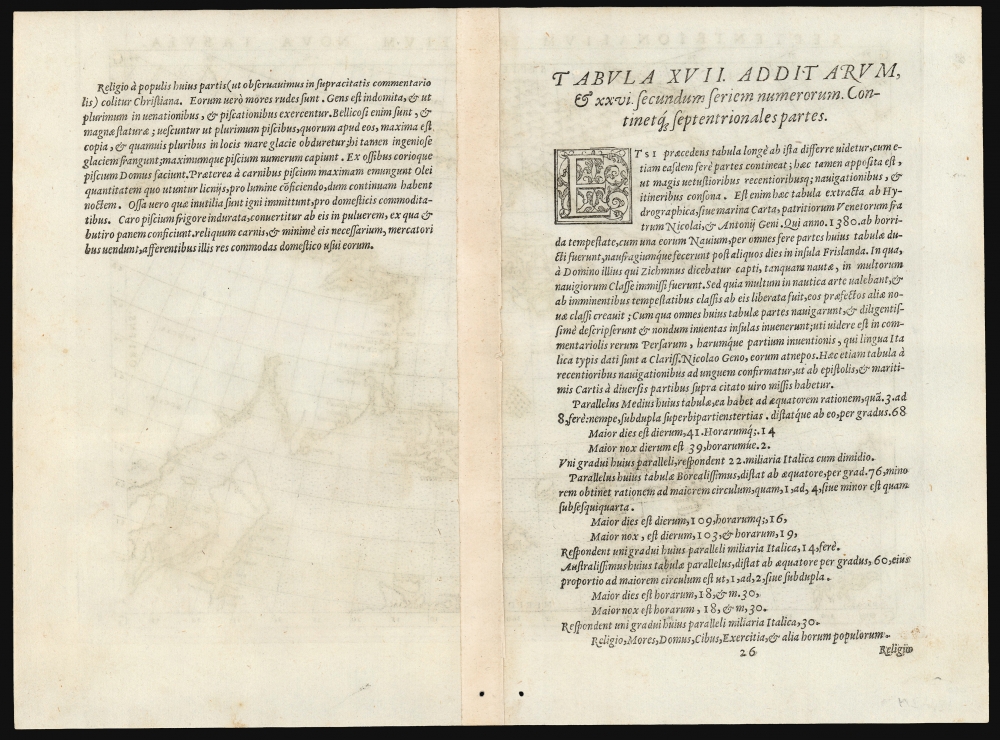 Religio à populis huius partis (ut obseruauimus in supracitatis commentario
lis) colitur Christiana. Eorum uerò mores rudes sunt. Gens est indomita, & ut
plurimum in uenationibus, & piscationibus exercentur. Bellicosi enim sunt, &
magnæ staturæ; uescuntur ut plurimum piscibus, quorum apud eos, maxima est
copia, & quamuis pluribus in locis mare glacie obduretur; hi tamen ingeniose
glaciem frangunt; maximumque piscium numerum capiunt. Ex ossibus corioque
piscium Domus faciunt. Præterea à carnibus piscium maximam emungunt Olei
quantitatem quo utuntur licnijs, pro lumine cōficiendo, dum continuam habent
noctem. Ossa uero quæ inutilia sunt igni immittunt, pro domesticis commodita-
tibus. Caro piscium frigore indurata, conuertitur ab eis in puluerem, ex qua &
butiro panem conficiunt. reliquum carnis, & minimè eis necessarium, mercatori
bus uendunt, afferentibus illis res commodas domestico usui eorum.
TABVLA XVII. ADDITARVM,
& xxvi. secundum seriem numerorum. Con-
tinetq́; septentrionales partes.
ETSI præcedens tabula longè ab ista differre uidetur, cum e-
tiam easdem ferè partes contineat; hæc tamen apposita est,
ut magis uetustioribus recentioribusq; nauigationibus, &
itineribus consona. Est enim hæc tabula extracta ab Hy-
drographica, siue marina Carta, patritiorum Venetorum fra
trum Nicolai, & Antonij Geni. Qui anno. 1380. ab horri-
da tempestate, cum una eorum Nauium, per omnes fere partes huius tabulæ du-
cti fuerunt, naufragiumque fecerunt post aliquos dies in insula Frislanda. In qua,
à Domino illius qui Zichmnus dicebatur capti, tanquam nautæ, in multorum
nauigiorum Classe immissi fuerunt. Sed quia multum in nautica arte ualebant, &
ab imminentibus tempestatibus classis ab eis liberata fuit, eos præfectos aliæ no-
uæ classi creauit; Cum qua omnes huius tabulæ partes nauigarunt, & diligentis-
simè descripserunt & nondum inuentas insulas inuenerunt; uti uidere est in com-
mentariolis rerum Persarum, harumque partium inuentionis, qui lingua Ita
lica typis dati sunt a Clariss. Nicolao Geno, eorum atnepos. Hæc etiam tabula à
recentioribus nauigationibus ad unguem confirmatur, ut ab epistolis, & mariti-
mis Cartis à diuersis partibus supra citato uiro missis habetur.
Parallelus Medius huius tabulæ, ea habet ad æquatorem rationem, quā. 3. ad
8, ferè: nempe, subdupla superbipartienstertias. distatque ab eo, per gradus. 68
Maior dies est dierum, 41. Horarumq;. 14
Maior nox dierum est 39, horarumue. 2.
Vni gradui huius paralleli, respondent 22. miliaria Italica cum dimidio.
Parallelus huius tabulæ Borealissimus, distat ab æquatore, per grad. 76, mino
rem obtinet rationem ad maiorem circulum, quam, 1, ad, 4, siue minor est quam
subsesquiquarta.
Maior dies est dierum, 109, horarumq;, 16,
Maior nox, est dierum, 103, & horarum, 19,
Respondent uni gradui huius paralleli miliaria Italica, 14, ferè.
Australissimus huius tabulæ parallelus, distat ab æquatore per gradus, 60, eius
proportio ad maiorem circulum est ut, 1, ad, 2, siue subdupla.
Maior dies est horarum, 18, & m. 30,
Maior nox est horarum, 18, & m, 30.
Respondent uni gradui huius paralleli miliaria Italica, 30.
Religio, Mores, Domus, Cibus, Exercitia, & alia horum populorum.
26 Religio